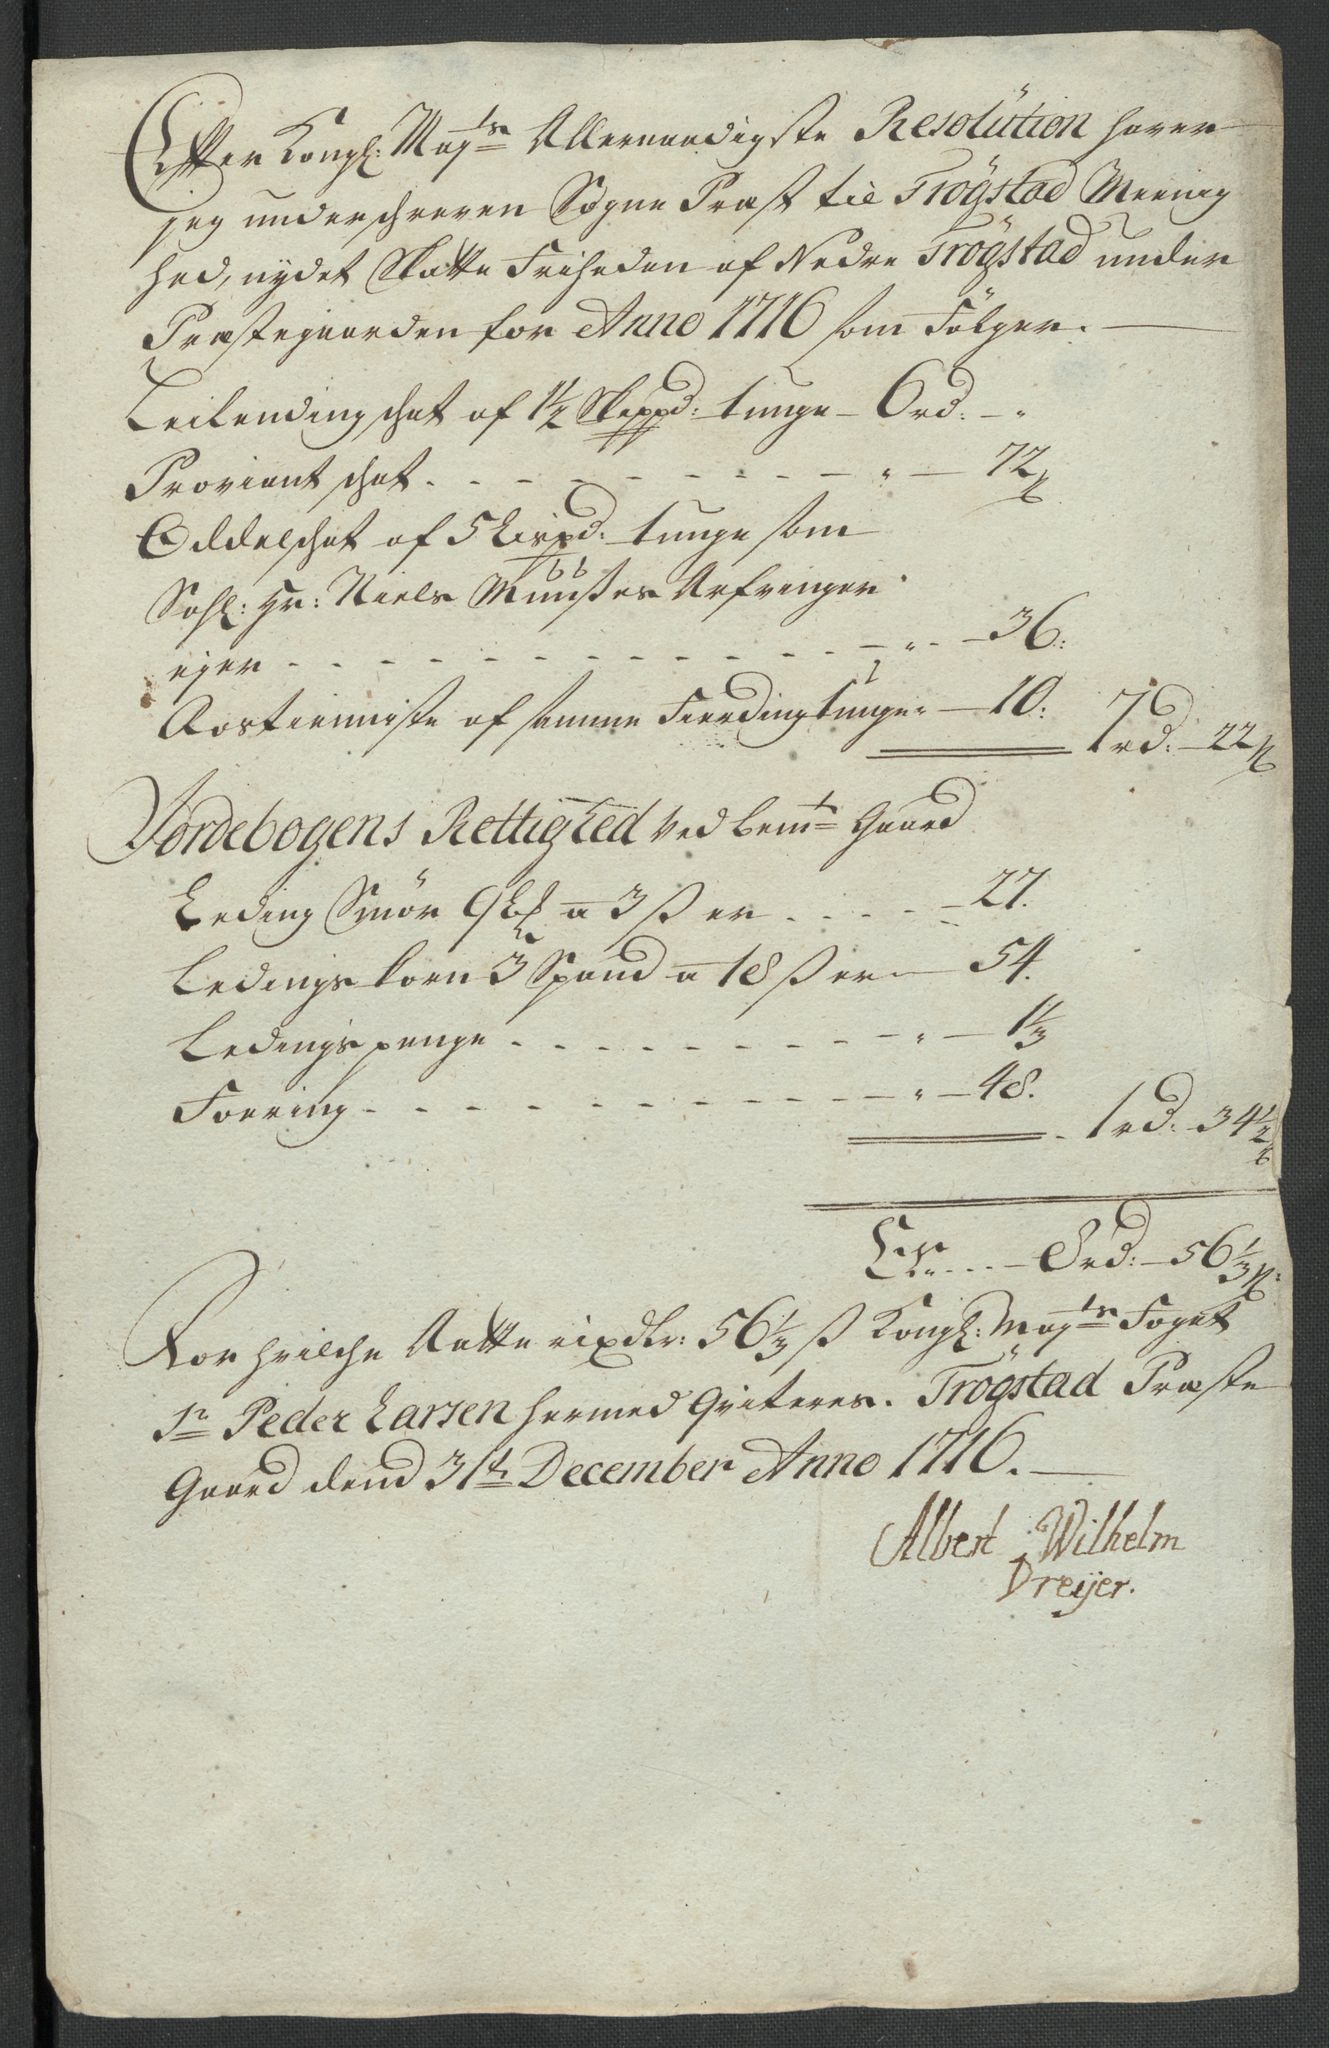 Efter Kongl: May:ts Allernaadigste Resolution haver
jeg underschreven Sogne Præst til Trögstad Meenig
hed, nydet Skatte Friheden af Nedre Trögstad under
Præstegaarden for Anno 1716 som Fölger.
Leilending schat af 1½ Skippd: tunge - 6 rd: - "
Proviant schat - " - 72 ß
Oddelschat af 5 Lispd: tunge som
Sahl: Hr: Niels Munsses Arfvinger
ejer - " - 36:
Rostienniste af samme Fierding tunge " - 10: 7 rd: - 22 ß
Jordebogens Rettighed ved bemte Gaard
Leding Smör 9 a 3 ß er - 27.
Ledings korn 3 Spand a 18 ß er - 54.
Ledings penge - " - 1⅓
Foering - " - 48. 1 rd: 34½ ß
8 rd: - 56⅓ ß:
For hvilche Aatte rixdlr: 56⅓ ß Kongl: Mayts Foget
Sr Peder Larsen hermed Qviteres. Trögstad Præste
Gaard dend 31te December Anno 1716.
Albert Wilhelm
Dreijer.